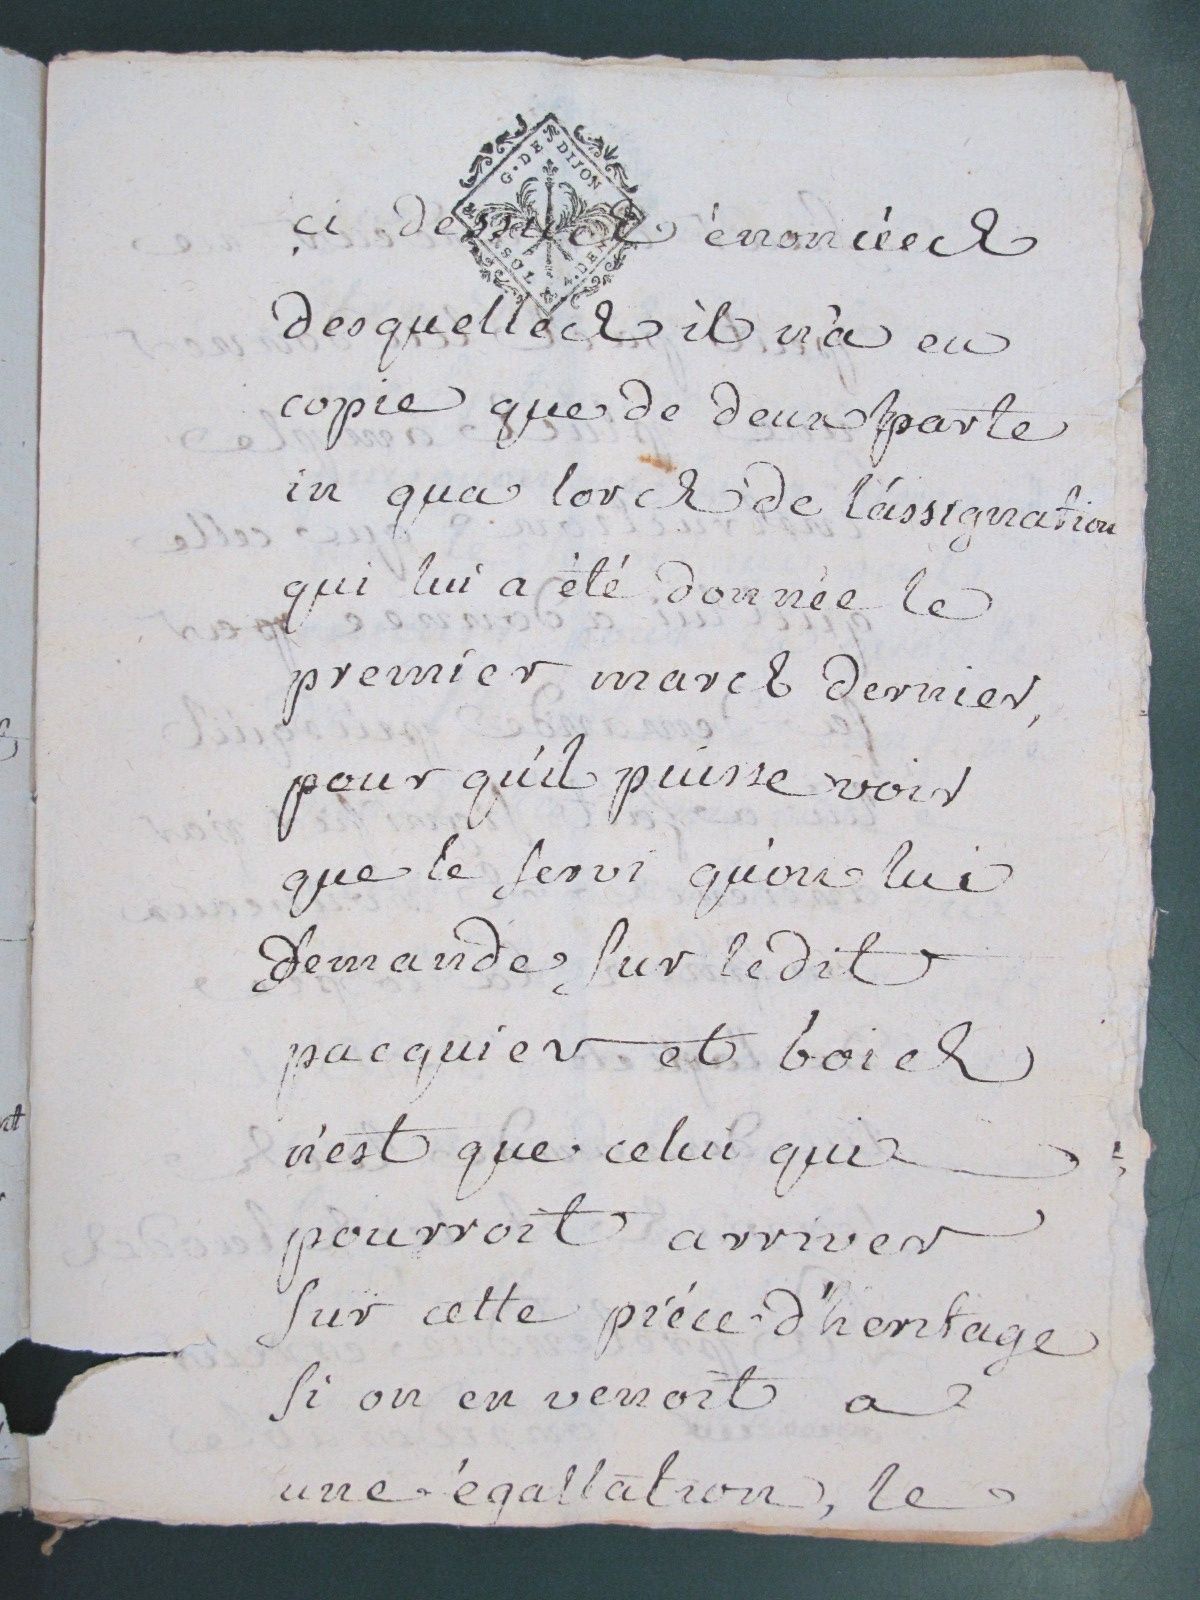 G. DE DIJON
SOL
4. DE
ci dessus énoncées
desquelles il n'a eu
copie que de deux parte
in qua lors de l'assignation
qui lui a été donnée le
premier mars dernier,
pour qu'il puisse voir
que le servi qu'on lui
demande sur ledit
pacquier et bois
n'est que celui qui
pourroit arriver
sur cette piéce d'heritage
si on en venoit a
une égallation, le